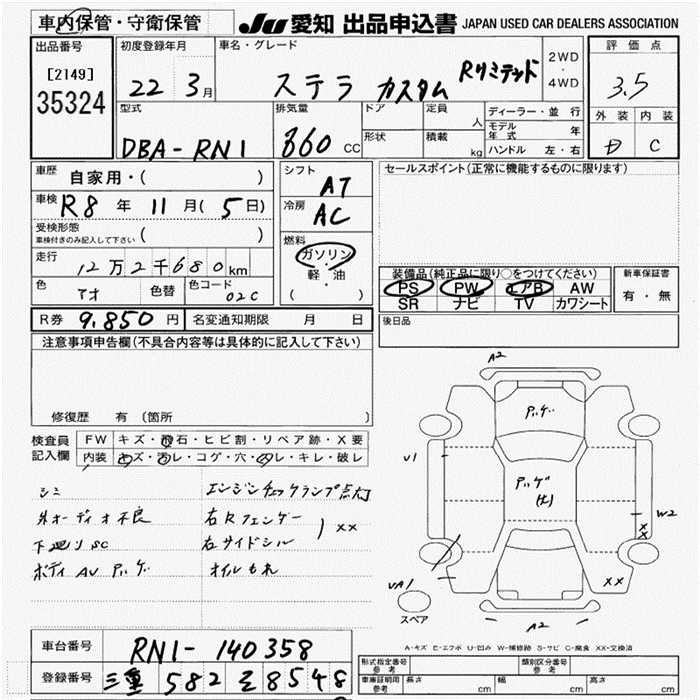 車内保管・守衛保管 JU 愛知 出品申込書 JAPAN USED CAR DEALERS ASSOCIATION
出品番号 初度登録年月 車名・グレード 2WD ・ 4WD 評価点
[2149] 35324 22 3月 ステラ カスタム Rリミテッド 3.5
型式 排気量 ドア 定員 人 ディーラー・並 行 外装 内装
DBA-RN1 660 CC 形状 積載 kg モデル年式 年 D C
ハンドル 左・右
車歴 自家用・( ) シフト AT セールスポイント(正常に機能するものに限ります)
車検 R8 年 11 月( 5 日) 冷房 AC
受検形態 車検付きのみ記入して下さい ( ) 燃料 ガソリン ・ 軽・油 ( )
走行 12万2千680km
色 アオ 色替 色コード 02C
装備品(純正品に限り○をつけてください) 新車保証書
PS PW エアB AW 有・無
SR ナビ TV カワシート
R券 9,850 円 名変通知期限 月 日 後日品
注意事項申告欄(不具合内容等は具体的に記入して下さい)
修復歴 有 (箇所 )
検査員記入欄 FW キズ・飛石・ヒビ割・リペア跡・X要
内装 キズ・汚レ・コゲ・穴・スレ・キレ・破レ
シミ エンジンチェックランプ点灯
外オーディオ不良 右Rフェンダー
下廻りSC 右サイドシル ) XX
ボディ AU アリ オイルもれ
A2
U1
W2
XX
XX
UA1
スペア
A2
A-キズ E-エクボ U-凹み W-補修跡 S-サビ C-腐食 XX-交換済
車台番号 RN1-140358
登録番号 三重 582 そ 8548
型式指定番号 参考 類別区分番号 参考
車庫証明用 参考 長さ cm 幅 cm 高さ cm